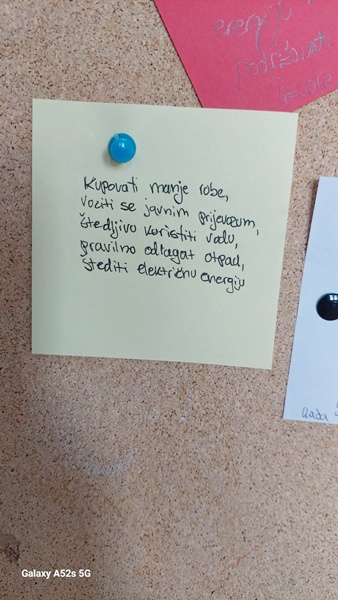 energiju
podržavat
izvore
Kupovati manje robe,
voziti se javnim prijevozom,
štedljivo koristiti vodu,
pravilno odlagat otpad,
štediti električnu energiju
Galaxy A52s 5G